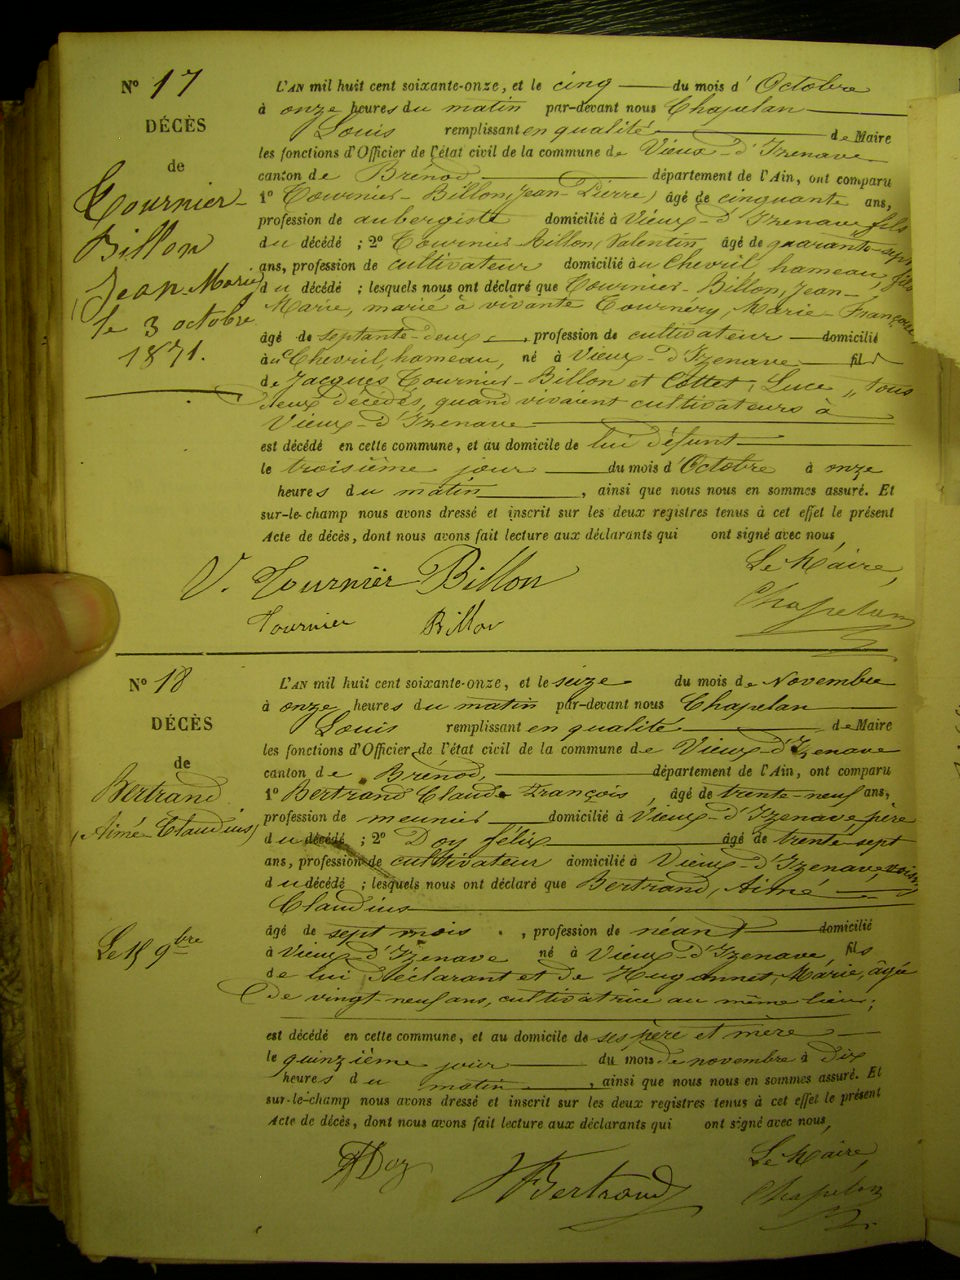 N° 17
DÉCÈS
de
Tournier-
Billon
(Jean-Marie)
le 3 octobre
1871.
L'AN mil huit cent soixante-onze, et le cinq du mois d'Octobre
à onze heures du matin par-devant nous Chapelan
Louis remplissant en qualité de Maire
les fonctions d'Officier de l'état civil de la commune de Vieux-d'Izenave
canton de Brénod département de l'Ain, ont comparu
1° Tournier-Billon, (Jean-Pierre) âgé de cinquante ans,
profession de aubergiste domicilié à Vieux-d'Izenave, fils
du décédé ; 2° Tournier-Billon, Valentin, âgé de quarante-sept
ans, profession de cultivateur domicilié au Chevril, hameau, fils
du décédé ; lesquels nous ont déclaré que Tournier-Billon, Jean-
Marie, marié à vivante Tournéry, Marie-Françoise
âgé de septante-deux, profession de cultivateur domicilié
au Chevril, hameau, né à Vieux-d'Izenave fils
de Jacques Tournier-Billon et Cottet, Luce, tous
deux décédés, quand vivaient cultivateurs à
Vieux-d'Izenave
est décédé en cette commune, et au domicile de lui défunt
le troisième jour du mois d'Octobre à onze
heures du matin, ainsi que nous nous en sommes assuré. Et
sur-le-champ nous avons dressé et inscrit sur les deux registres tenus à cet effet le présent
Acte de décès, dont nous avons fait lecture aux déclarants qui ont signé avec nous,
Le Maire,
V. Tournier Billon
Chapelan
Tournier Billon
N° 18
DÉCÈS
de
Bertrand
(Aimé-Claudius)
Le 15 9bre
L'AN mil huit cent soixante-onze, et le seize du mois de Novembre
à onze heures du matin par-devant nous Chapelan
Louis remplissant en qualité de Maire
les fonctions d'Officier de l'état civil de la commune de Vieux-d'Izenave
canton de Brénod, département de l'Ain, ont comparu
1° Bertrand Claude François, âgé de trente-neuf ans,
profession de meunier domicilié à Vieux-d'Izenave père
du décédé ; 2° Doy félix âgé de trente-sept
ans, profession de cultivateur domicilié à Vieux-d'Izenave, voisin
du décédé ; lesquels nous ont déclaré que Bertrand, Aimé
Claudius
âgé de sept mois, profession de néant domicilié
à Vieux-d'Izenave né à Vieux-d'Izenave, fils
de lui déclarant et de Hugonnet, Marie, âgée
de vingt-neuf ans, cultivatrice au même lieu;
est décédé en cette commune, et au domicile de ses père et mère
le quinzième jour du mois de novembre à dix
heures du matin, ainsi que nous nous en sommes assuré. Et
sur-le-champ nous avons dressé et inscrit sur les deux registres tenus à cet effet le présent
Acte de décès, dont nous avons fait lecture aux déclarants qui ont signé avec nous,
Le Maire,
Doy
Bertrand
Chapelan